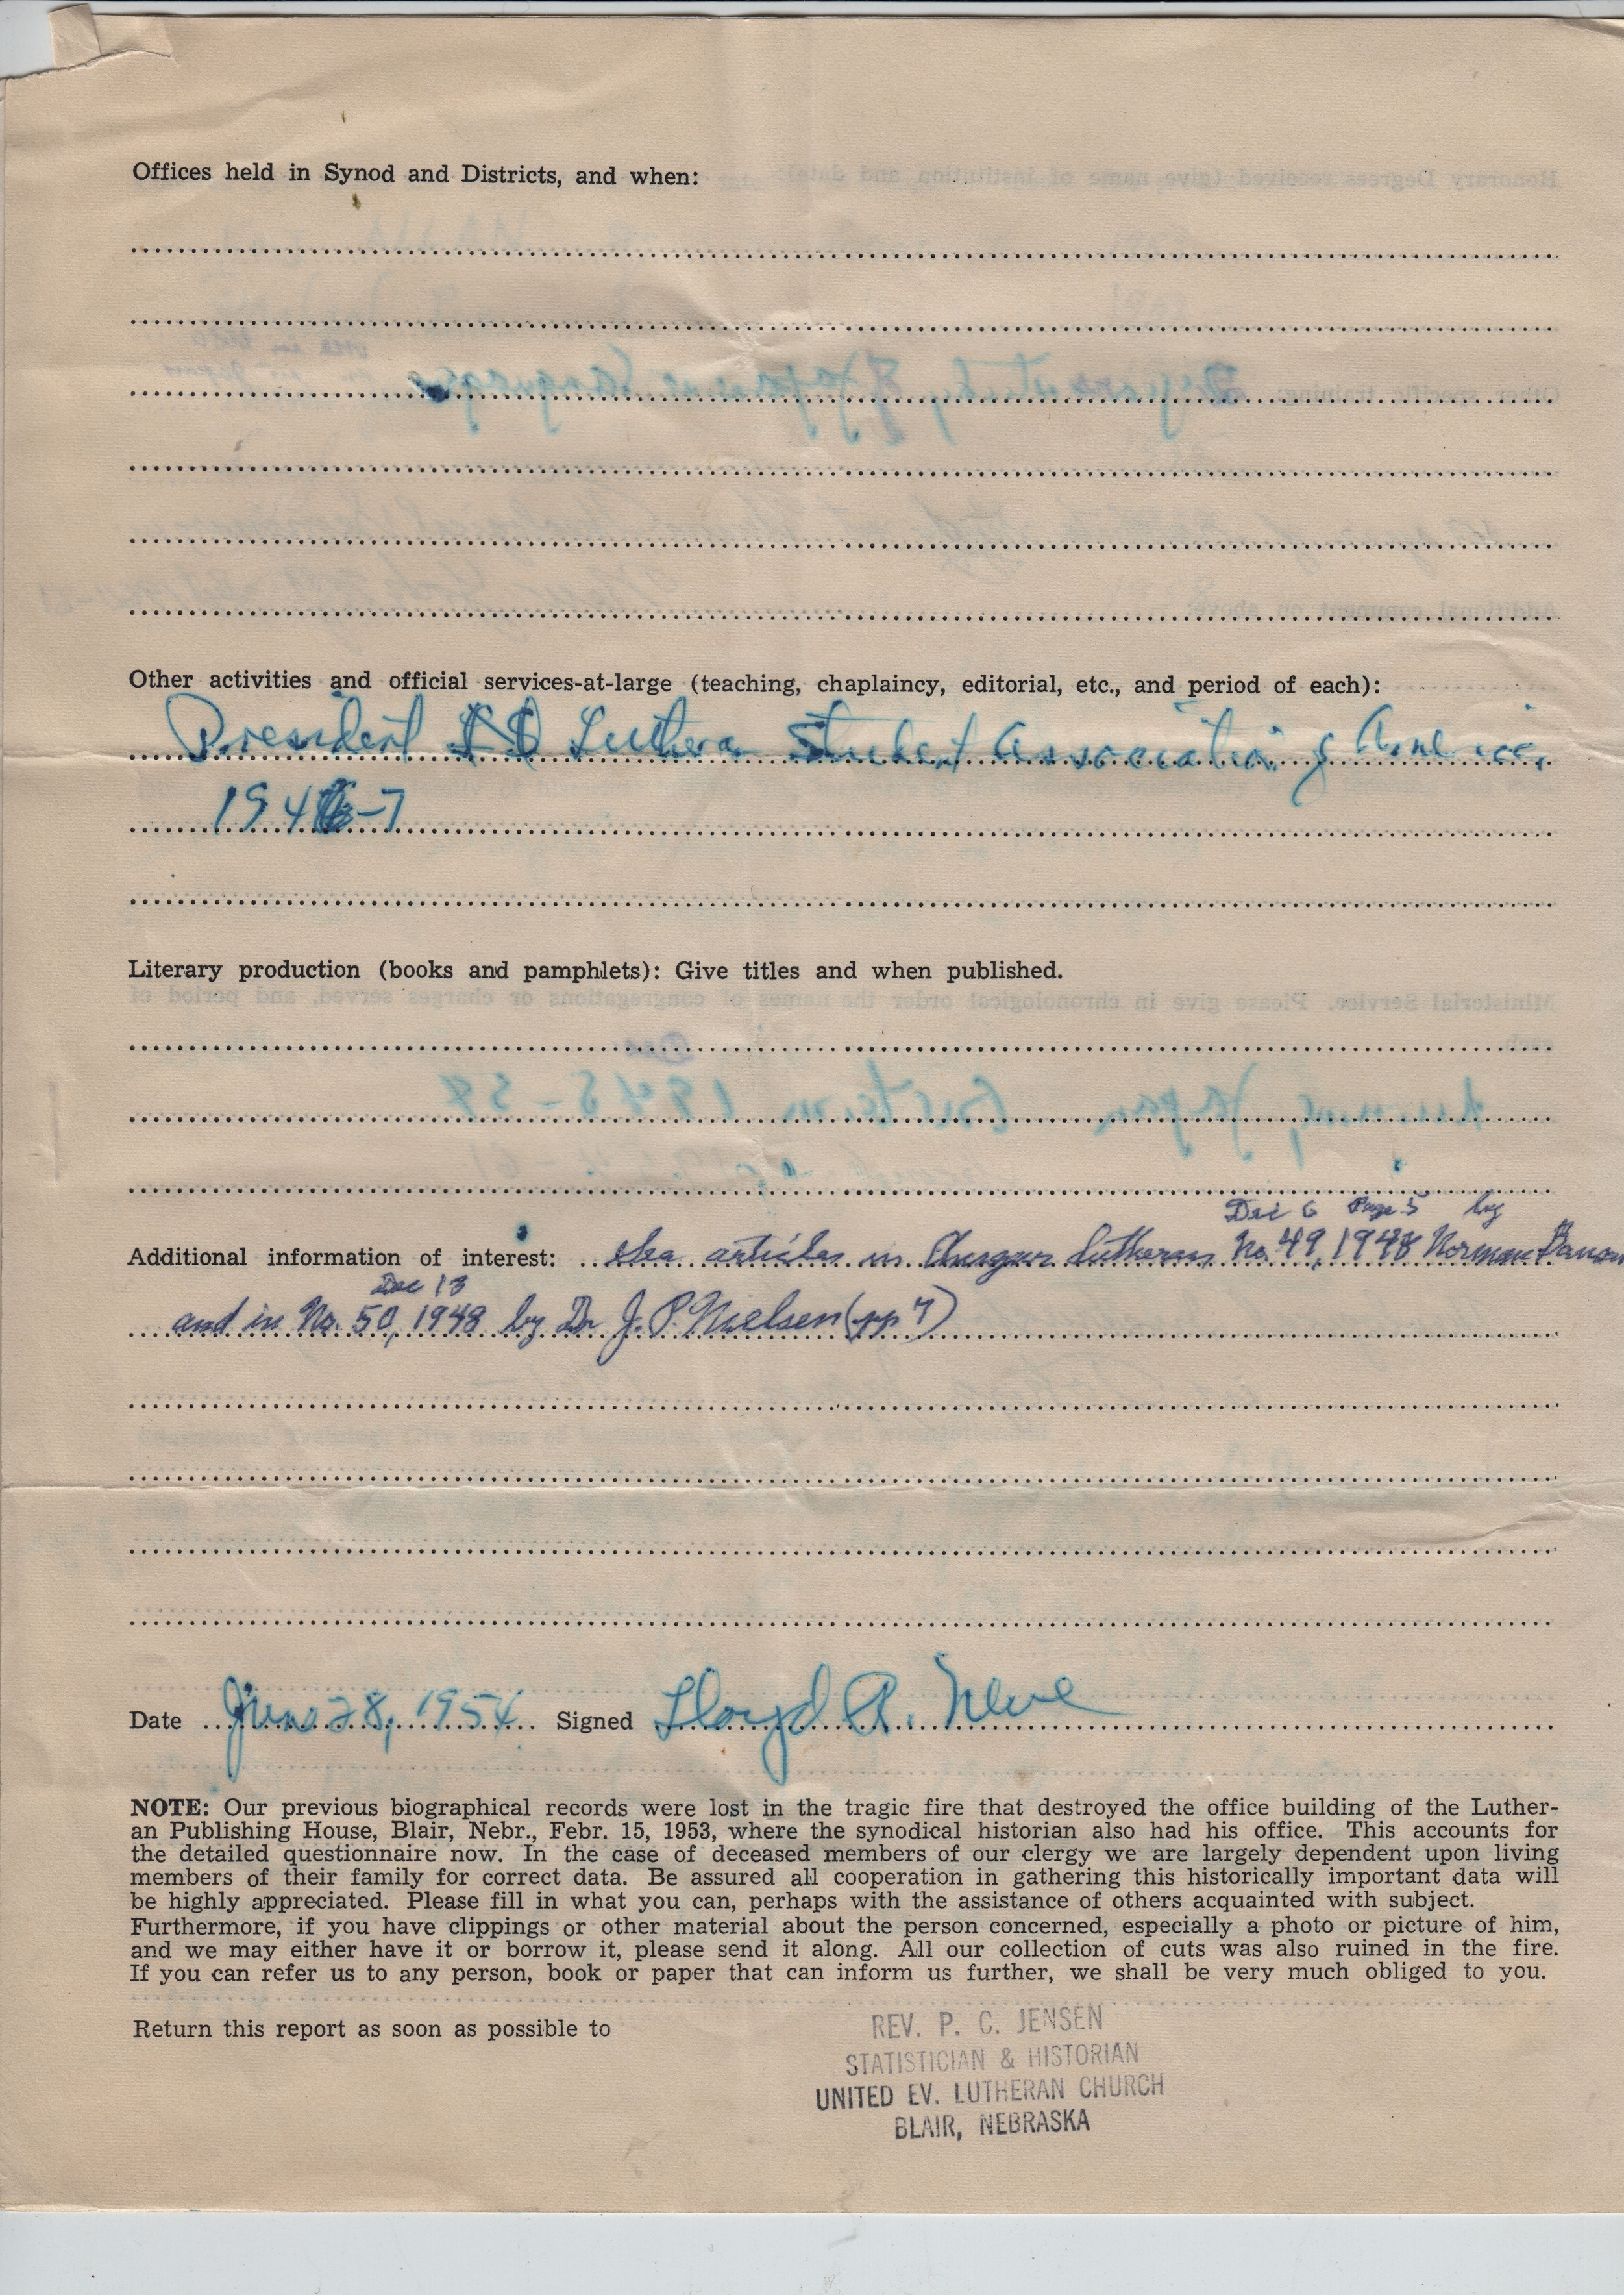 Offices held in Synod and Districts, and when:
Other activities and official services-at-large (teaching, chaplaincy, editorial, etc., and period of each):
President Lutheran Student Association of America,
1946-7
Literary production (books and pamphlets): Give titles and when published.
Dec 6 Page 5 by
Additional information of interest: articles in Lutheran, No. 49, 1948 Norman
Dec 13
and in No. 50, 1948 by Dr. J. P. Nielsen (pp 7)
Date June 28, 1954 Signed Lloyd R. Neve
NOTE: Our previous biographical records were lost in the tragic fire that destroyed the office building of the Luther-
an Publishing House, Blair, Nebr., Febr. 15, 1953, where the synodical historian also had his office. This accounts for
the detailed questionnaire now. In the case of deceased members of our clergy we are largely dependent upon living
members of their family for correct data. Be assured all cooperation in gathering this historically important data will
be highly appreciated. Please fill in what you can, perhaps with the assistance of others acquainted with subject.
Furthermore, if you have clippings or other material about the person concerned, especially a photo or picture of him,
and we may either have it or borrow it, please send it along. All our collection of cuts was also ruined in the fire.
If you can refer us to any person, book or paper that can inform us further, we shall be very much obliged to you.
Return this report as soon as possible to
REV. P. C. JENSEN
STATISTICIAN & HISTORIAN
UNITED EV. LUTHERAN CHURCH
BLAIR, NEBRASKA